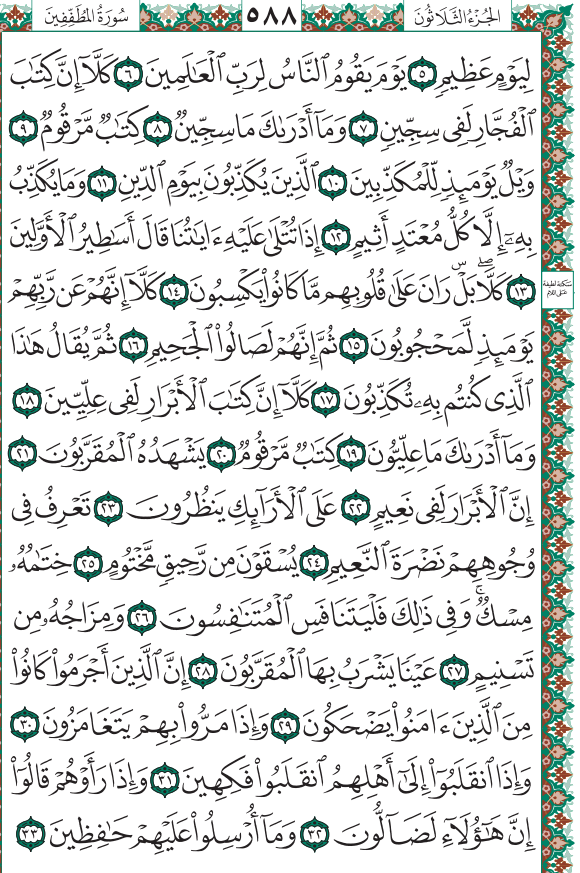 الجُزْءُ الثَّلَاثُونَ ٥٨٨ سُورَةُ المُطَفِّفِينَ
لِيَوْمٍ عَظِيمٖ ٥ يَوْمَ يَقُومُ ٱلنَّاسُ لِرَبِّ ٱلْعَٰلَمِينَ ٦ كَلَّآ إِنَّ كِتَٰبَ
ٱلْفُجَّارِ لَفِى سِجِّينٖ ٧ وَمَآ أَدْرَىٰكَ مَا سِجِّينٞ ٨ كِتَٰبٞ مَّرْقُومٞ ٩
وَيْلٞ يَوْمَئِذٖ لِّلْمُكَذِّبِينَ ١٠ ٱلَّذِينَ يُكَذِّبُونَ بِيَوْمِ ٱلدِّينِ ١١ وَمَا يُكَذِّبُ
بِهِۦٓ إِلَّا كُلُّ مُعْتَدٍ أَثِيمٍ ١٢ إِذَا تُتْلَىٰ عَلَيْهِ ءَايَٰتُنَا قَالَ أَسَٰطِيرُ ٱلْأَوَّلِينَ
١٣ كَلَّاۖ بَلْۜ رَانَ عَلَىٰ قُلُوبِهِم مَّا كَانُوا۟ يَكْسِبُونَ ١٤ كَلَّآ إِنَّهُمْ عَن رَّبِّهِمْ
سكتة لطيفة
على اللام
يَوْمَئِذٖ لَّمَحْجُوبُونَ ١٥ ثُمَّ إِنَّهُمْ لَصَالُوا۟ ٱلْجَحِيمِ ١٦ ثُمَّ يُقَالُ هَٰذَا
ٱلَّذِى كُنتُم بِهِۦ تُكَذِّبُونَ ١٧ كَلَّآ إِنَّ كِتَٰبَ ٱلْأَبْرَارِ لَفِى عِلِّيِّينَ ١٨
وَمَآ أَدْرَىٰكَ مَا عِلِّيُّونَ ١٩ كِتَٰبٞ مَّرْقُومٞ ٢٠ يَشْهَدُهُ ٱلْمُقَرَّبُونَ ٢١
إِنَّ ٱلْأَبْرَارَ لَفِى نَعِيمٍ ٢٢ عَلَى ٱلْأَرَآئِكِ يَنظُرُونَ ٢٣ تَعْرِفُ فِى
وُجُوهِهِمْ نَضْرَةَ ٱلنَّعِيمِ ٢٤ يُسْقَوْنَ مِن رَّحِيقٖ مَّخْتُومٍ ٢٥ خِتَٰمُهُۥ
مِسْكٞۚ وَفِى ذَٰلِكَ فَلْيَتَنَافَسِ ٱلْمُتَنَٰفِسُونَ ٢٦ وَمِزَاجُهُۥ مِن
تَسْنِيمٍ ٢٧ عَيْنٗا يَشْرَبُ بِهَا ٱلْمُقَرَّبُونَ ٢٨ إِنَّ ٱلَّذِينَ أَجْرَمُوا۟ كَانُوا۟
مِنَ ٱلَّذِينَ ءَامَنُوا۟ يَضْحَكُونَ ٢٩ وَإِذَا مَرُّوا۟ بِهِمْ يَتَغَامَزُونَ ٣٠
وَإِذَا ٱنقَلَبُوٓا۟ إِلَىٰٓ أَهْلِهِمُ ٱنقَلَبُوا۟ فَكِهِينَ ٣١ وَإِذَا رَأَوْهُمْ قَالُوٓا۟
إِنَّ هَٰٓؤُلَآءِ لَضَآلُّونَ ٣٢ وَمَآ أُرْسِلُوا۟ عَلَيْهِمْ حَٰفِظِينَ ٣٣